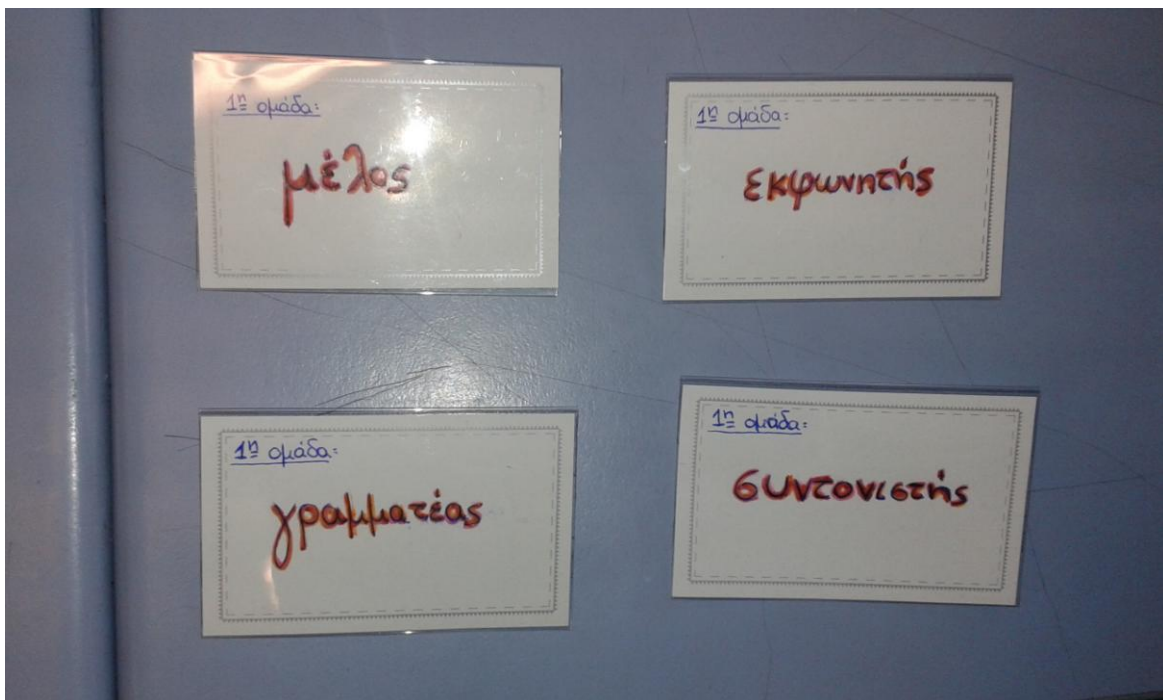 1η ομάδα:
μέλος
1η ομάδα:
εκφωνητής
1η ομάδα:
γραμματέας
1η ομάδα:
συντονιστής